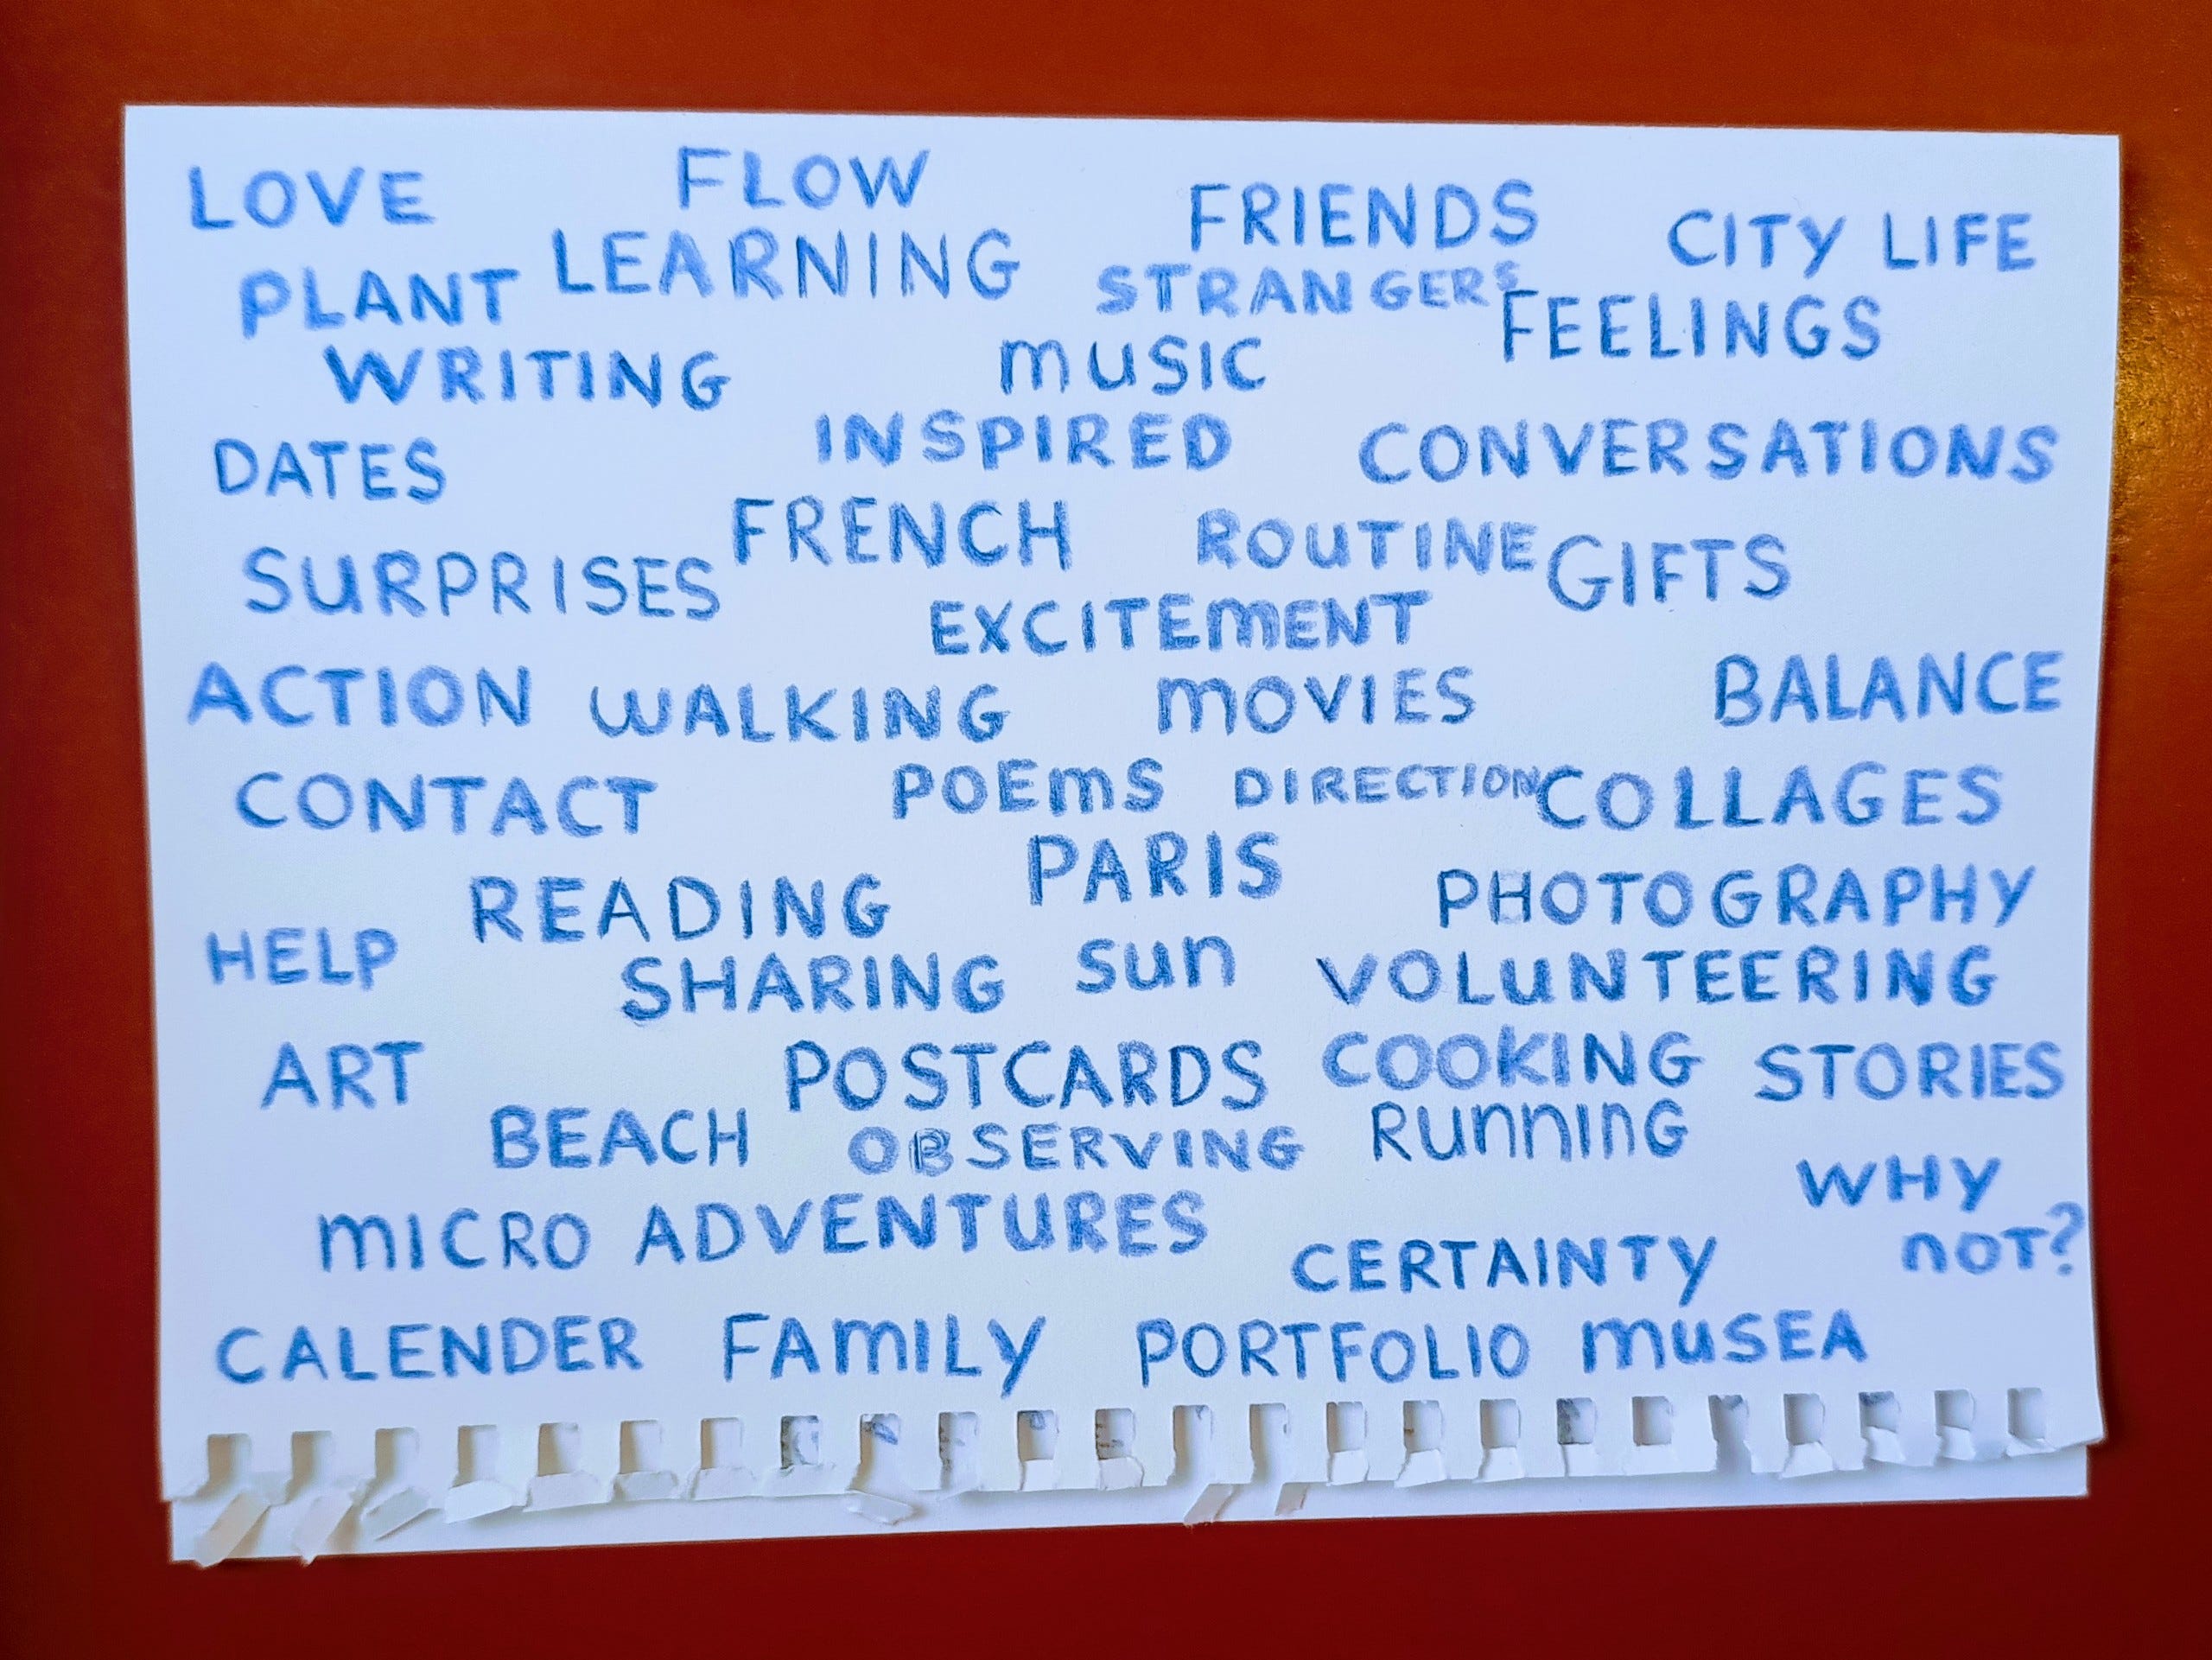 LOVE FLOW FRIENDS CITY LIFE
PLANT LEARNING STRANGERS FEELINGS
WRITING MUSIC
DATES INSPIRED CONVERSATIONS
SURPRISES FRENCH ROUTINE GIFTS
EXCITEMENT
ACTION WALKING MOVIES BALANCE
CONTACT POEMS DIRECTION COLLAGES
READING PARIS PHOTOGRAPHY
HELP SHARING SUN VOLUNTEERING
ART POSTCARDS COOKING STORIES
BEACH OBSERVING RUNNING
MICRO ADVENTURES WHY
CERTAINTY NOT?
CALENDER FAMILY PORTFOLIO MUSEA